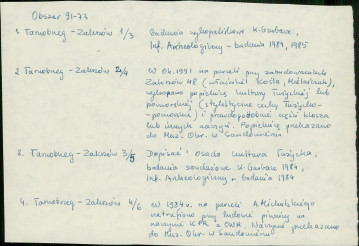 Obszar 91-73
1. Tarnobrzeg - Zakrzów 1/3 Badania wykopaliskowe K. Garbacz,
Inf. Archeologiczny - badania 1984, 1985
2 Tarnobrzeg - Zakrzów 2/4 W 04.1991 na parceli przy zabudowaniach
Zakrzów 48 (właściciel Kosła, Mścisław),
wykopano popielnicę kultury Łużyckiej lub
pomorskiej (stylistyczne cechy Łużycko-
-pomorskie) i prawdopodobnie część klosza
lub innych naczyń. Popielnicę przekazano
do Muz. Okr. w Sandomierzu
3. Tarnobrzeg - Zakrzów 3/5 Dopisać: Osada kultura Łużycka,
badania sondażowe K. Garbacz 1984,
Inf. Archeologiczny - badania 1984
4. Tarnobrzeg - Zakrzów 4/6 W 1984 r. na parceli A. Michalskiego
natrafiono przy budowie piwnicy na
naczynia KPR = OWR. Naczynia przekazano
do Muz. Okr. w Sandomierzu